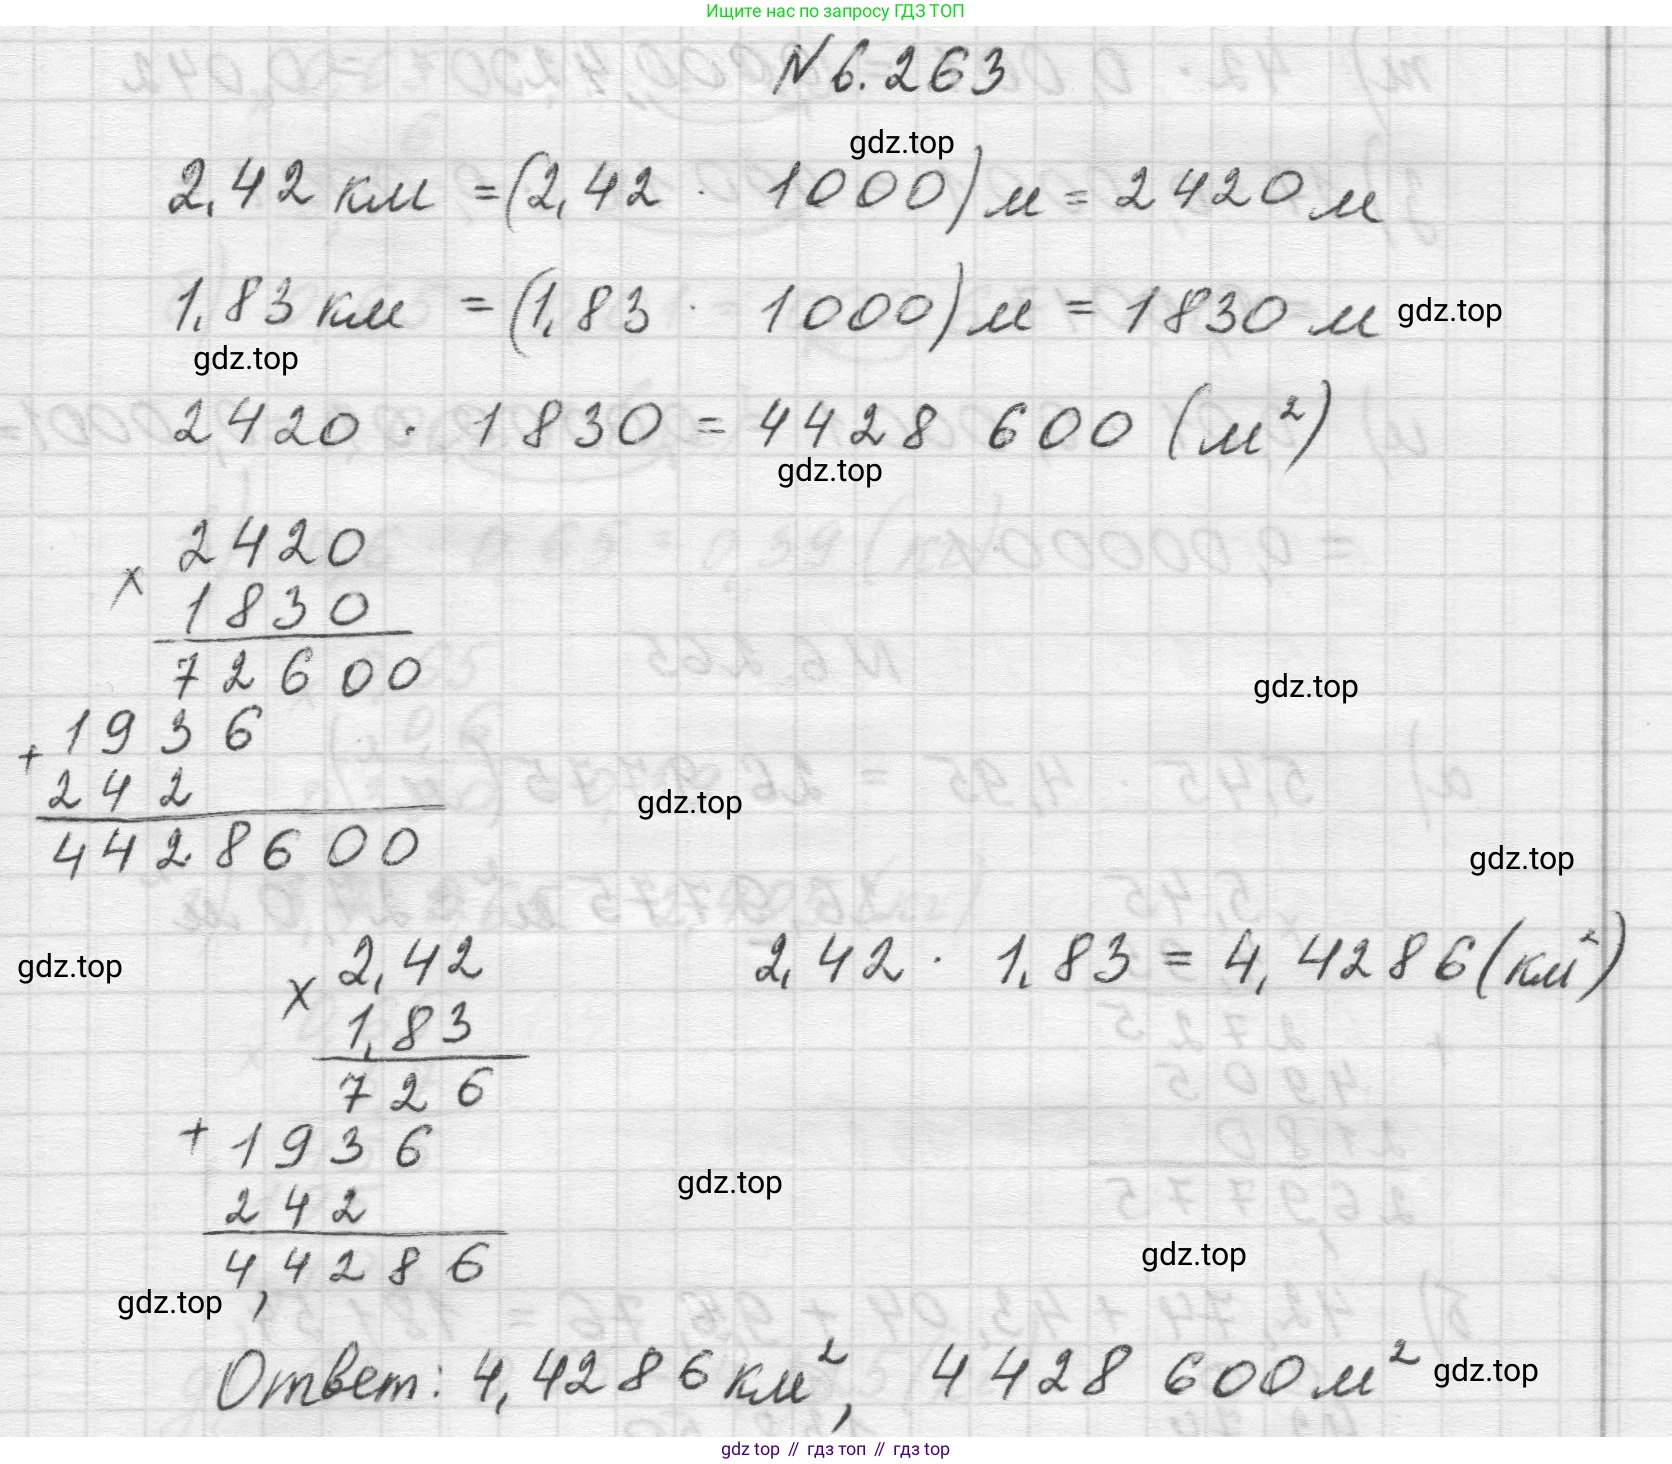 Ищите нас по запросу ГДЗ ТОП
№ 6.263
gdz.top
2,42 км = (2,42 · 1000) м = 2420 м
1,83 км = (1,83 · 1000) м = 1830 м gdz.top
gdz.top
2420 · 1830 = 4428 600 (м²)
gdz.top
2420
×
1830
72600
gdz.top
1936
+
242
gdz.top
4428600
gdz.top
gdz.top
2,42
×
1,83
2,42 · 1,83 = 4,4286 (км²)
726
+ 1936
gdz.top
242
gdz.top
4,4286
gdz.top
Ответ: 4,4286 км², 4428 600 м² gdz.top
gdz top // гдз топ // гдз top